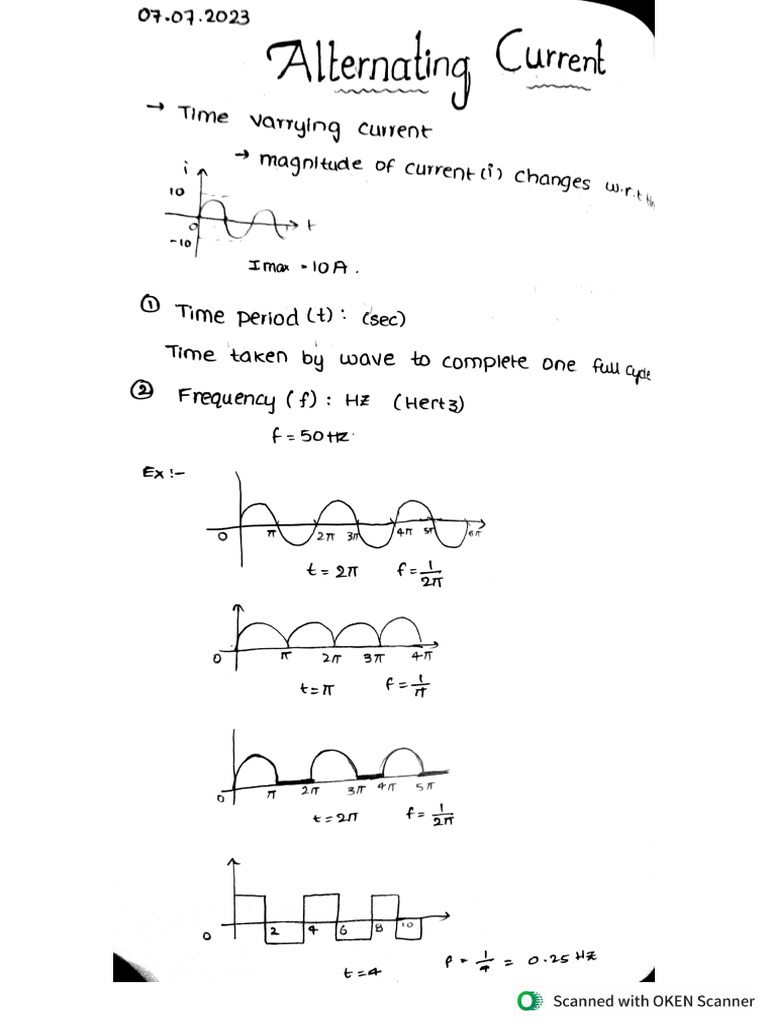 07.07.2023
Alternating Current
→ Time varrying current
→ magnitude of current (i) changes w.r.t
i
10
0
t
-10
Imax = 10A.
① Time period (t) : (sec)
Time taken by wave to complete one full cycle
② Frequency (f) : Hz (Hertz)
f = 50Hz.
Ex :-
0 π 2π 3π 4π 5π 6π
t = 2π f = 1/2π
0 π 2π 3π 4π
t = π f = 1/π
0 π 2π 3π 4π 5π
t = 2π f = 1/2π
0 2 4 6 8 10
t = 4 f = 1/4 = 0.25 Hz
Scanned with OKEN Scanner